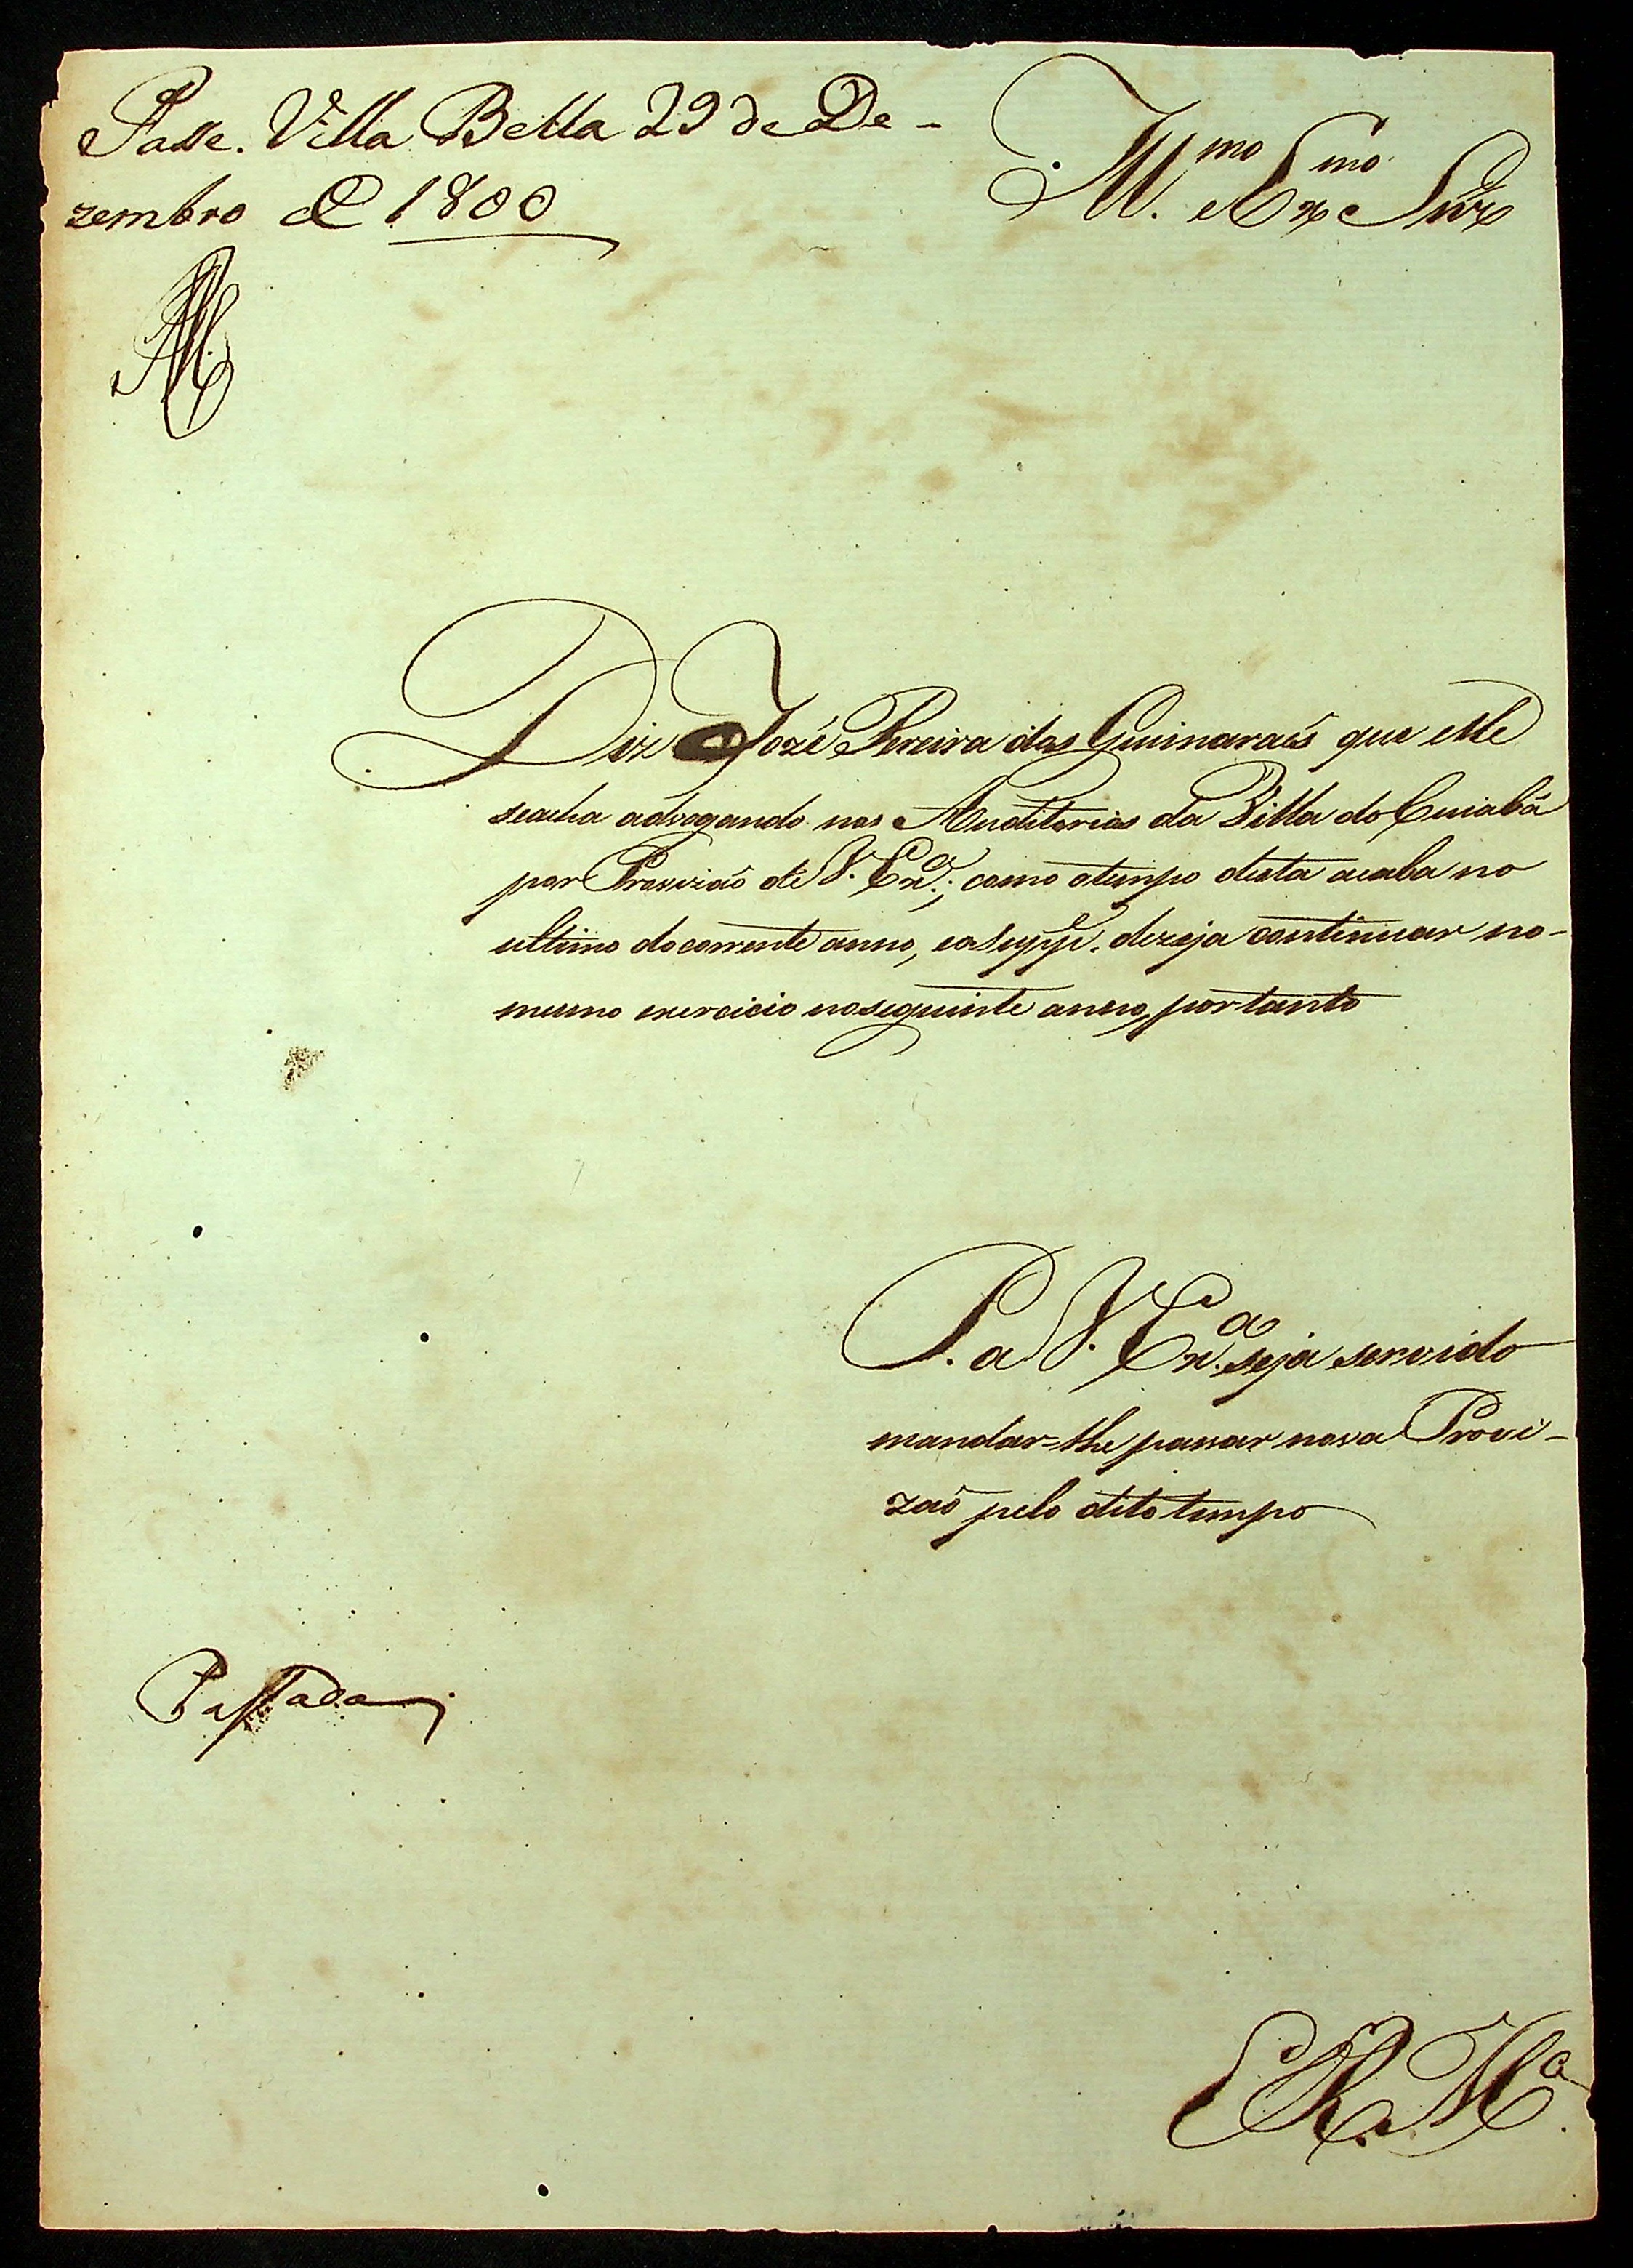 Passe. Villa Bella 29 de De-
zembro de 1800
Ill.mo e Ex.mo Snr
Diz Jozé Pereira dos Guimaraẽs que elle
seacha advogando nos Auditorios da Villa do Cuiabá
por Provizaõ de V. Ex.a; como otempo desta acaba no
ultimo docorrente anno, eoSupp.e dezeja continuar no-
mesmo exercicio noseguinte anno, portanto
P. a V. Ex.a seja servido
mandar=lhe passar nova Provi-
zaõ pelo dito tempo
Passada
E R. M.a